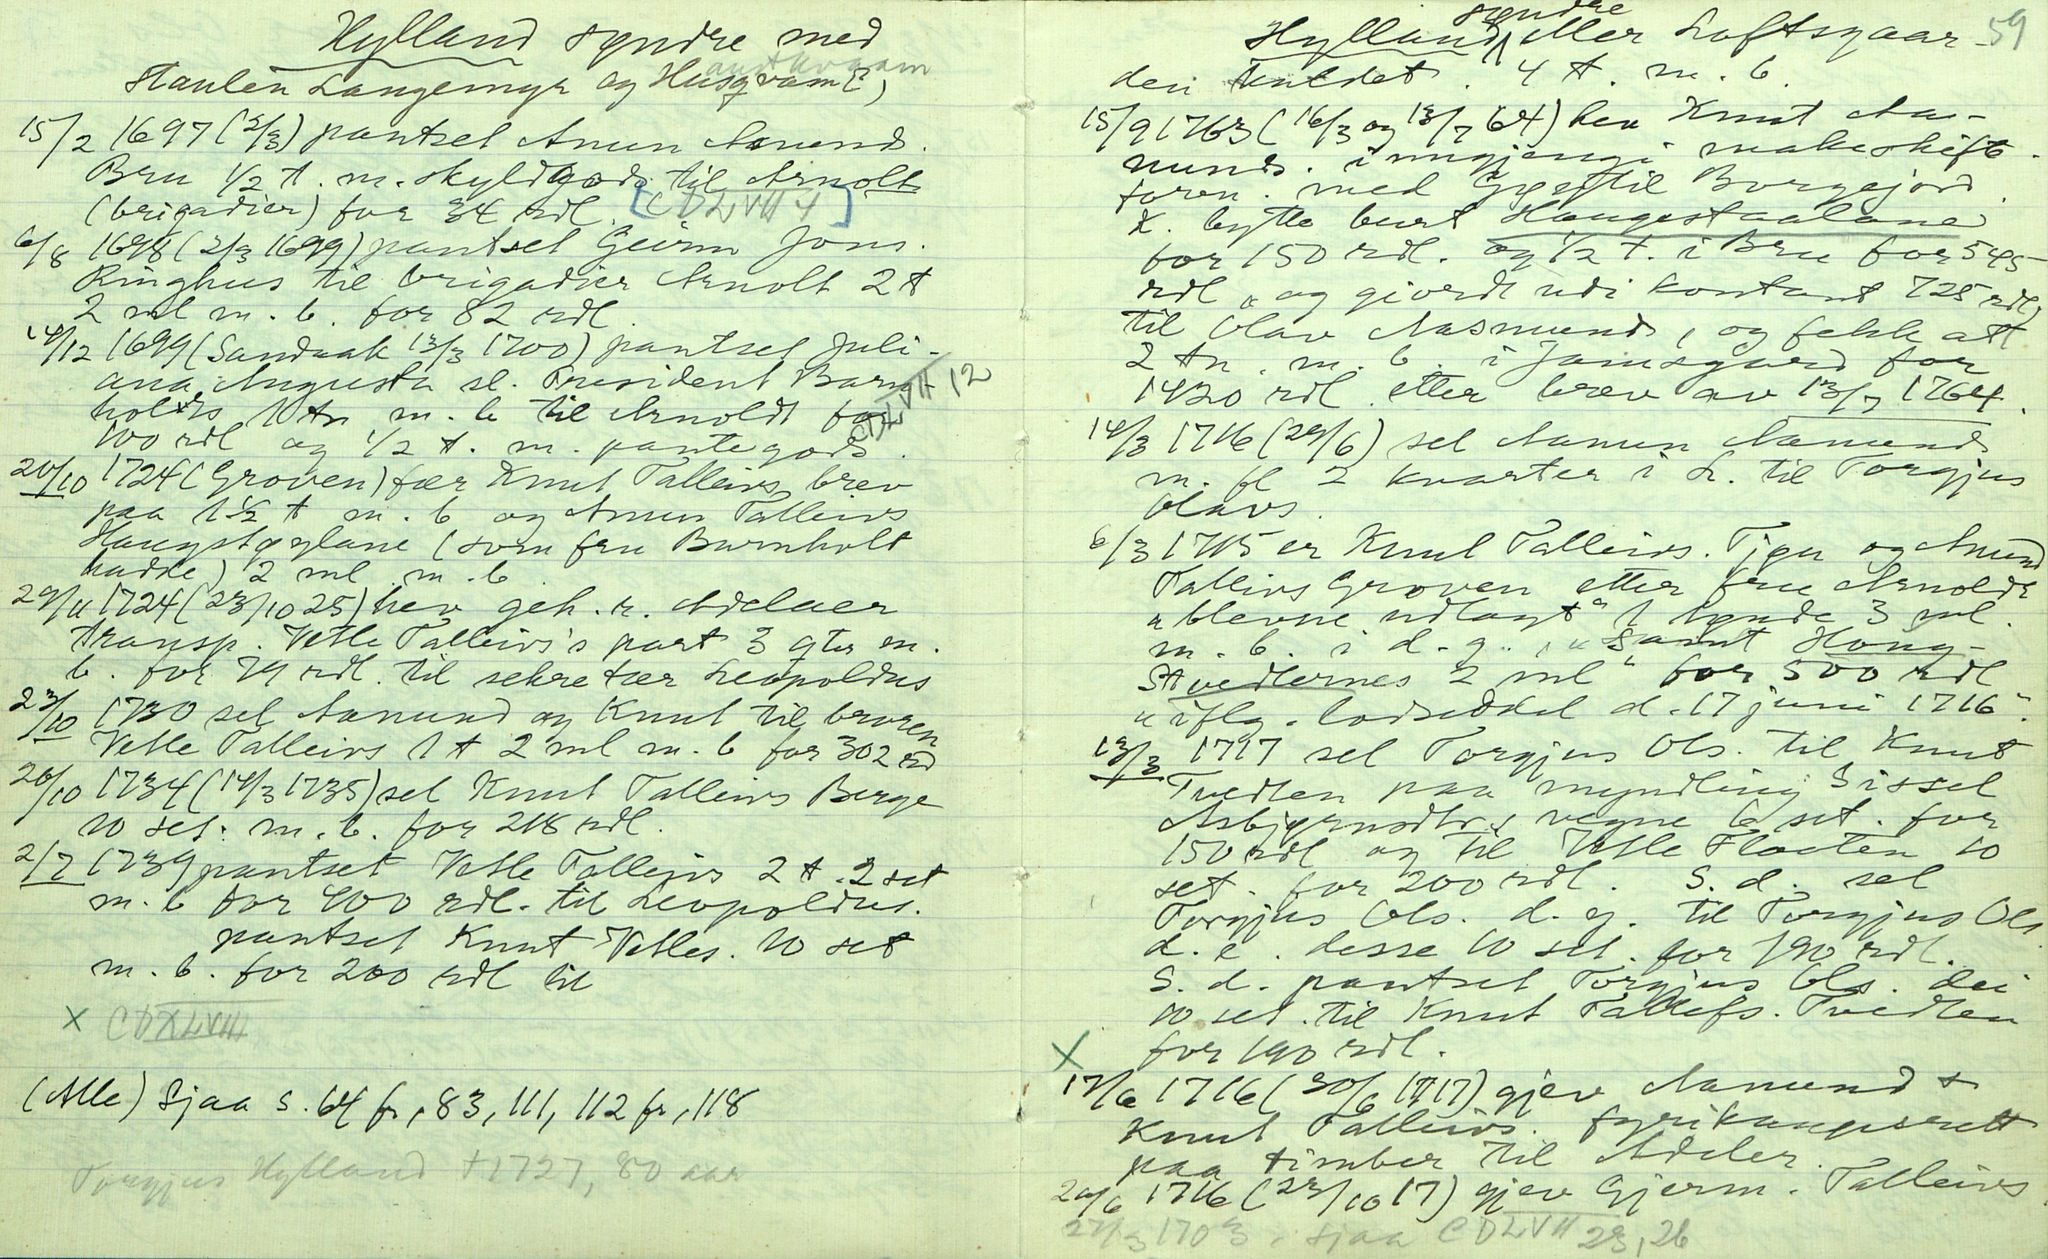 Hylland syndre med
Haulin Langemyr og Husqvam
15/2 1697 (2/3) pantset Amun Amunds.
Bru 1/2 t. m. skyldgods til Arnolt
(brigadier) for 34 rdl. [CDLVII 4]
6/8 1698 (2/3 1699) pantset Geirm Jons.
Ringhus til brigadier Arnolt 2 t
2 ml m. b. for 82 rdl.
14/12 1699 (Sandaak 13/3 1700) pantset Juli-
ana Augusta sl. President Barn-
holts 1 tn m. b til Arnoldt for
100 rdl og 1/2 t. m. pantegods. CDLVII 12
20/10 1724 (Groven) fær Knut Talleivs brev
paa 1 1/2 t m. b og Amun Talleivs
Haugstøylane (som fru Barnholt
hadde) 2 ml m. b
29/11 1724 (23/10 25) hev geh. r. Adelaer
transp. Vetle Talleivs's part 3 qter m.
b. for 79 rdl. til sekretær Leopoldus
23/10 1730 sel Aamund og Knut til broren
Vetle Talleivs 1 t 2 ml m. b for 302 rd
26/10 1734 (14/3 1735) sel Knut Talleivs Berge
10 set. m. b. for 218 rdl.
2/7 1739 pantset Vetle Talleivs 2 t. 2 set
m. b for 400 rdl. til Leopoldus.
pantset Knut Vetles. 10 set
m. b. for 200 rdl til
x CDXLVIII
(Alle) Sjaa s. 64 fr, 83, 111, 112 fr, 118
Torgjus Hylland †1727, 80 aar
59
syndre
Hylland, eller Loftsgaar-
den kaldet. 4 t. m. b.
15/9 1763 (16/3 og 13/7 64) hev Knut Aa-
munds. inngjengi makeskifte
foren. med Gje til Borgejord.
K. bytte burt Haugestaalane
for 150 rdl. og 1/2 t. i Bru for 545
rdl "og giord udi kontant 725 rdl"
til Olav Aasmunds, og fekk att
2 tn. m. b. i Jamsgard for
1420 rdl. etter brev av 13/7 1764.
14/3 1716 (29/6) sel Aamun Aamunds
m. fl 2 kvarter i H. til Torgjus
Olavs.
6/3 1715 er Knut Talleivs. Tigu og Amund
Talleivs Groven etter fru Arnolds
"blevne udlagt" 1 tynde 3 ml.
m. b. i d. g. , "samt Houg-
stvedlernes 2 ml" for 500 rdl
"iflg. lodseddel d. 17 juni 1716".
13/3 1717 sel Torgjus Ols. til Knut
Tvedten paa myndling Sissel
Asbjørnsdtrs vegne 6 set. for
150 rdl og til Vetle Flaaten 10
set. for 200 rdl. S. d. sel
Torgjus Ols. d. y. til Torgjus Ols.
d. e. desse 10 set. for 190 rdl.
S. d. pantset Torgjus Ols. dei
10 set. til Knut Tallefs. Tvedten
x for 190 rdl.
17/6 1716 (30/6 1717) gjev Aamund &
Knut Talleivs. fyrikaupsrett
paa timber til Adeler.
20/6 1716 (23/10 17) gjev Gjerm. Talleivs
27/3 1703. Sjaa CDLVII 23, 26